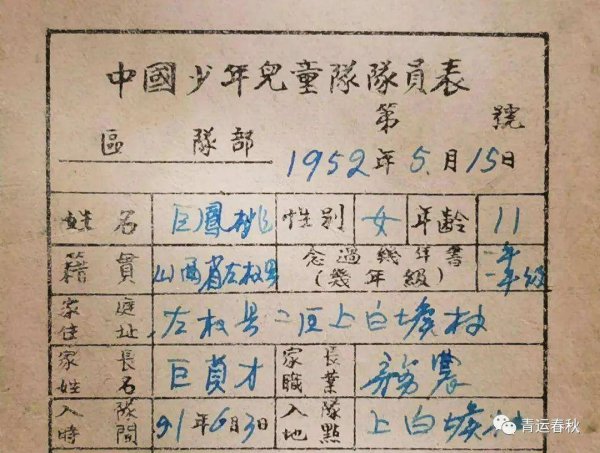 中國少年兒童隊隊員表
第 號
區 隊部 1952年5月15日
姓名 巨鳳桃 性别 女 年齡 11
籍貫 山西省左权县 念過幾年書(幾年級) 一年 一年級
家庭住址 左权县二区上白堠村
家長姓名 巨 才 家長職業 務農
入隊時間 51年6月3日 入隊地點 上白堠村
青运春秋